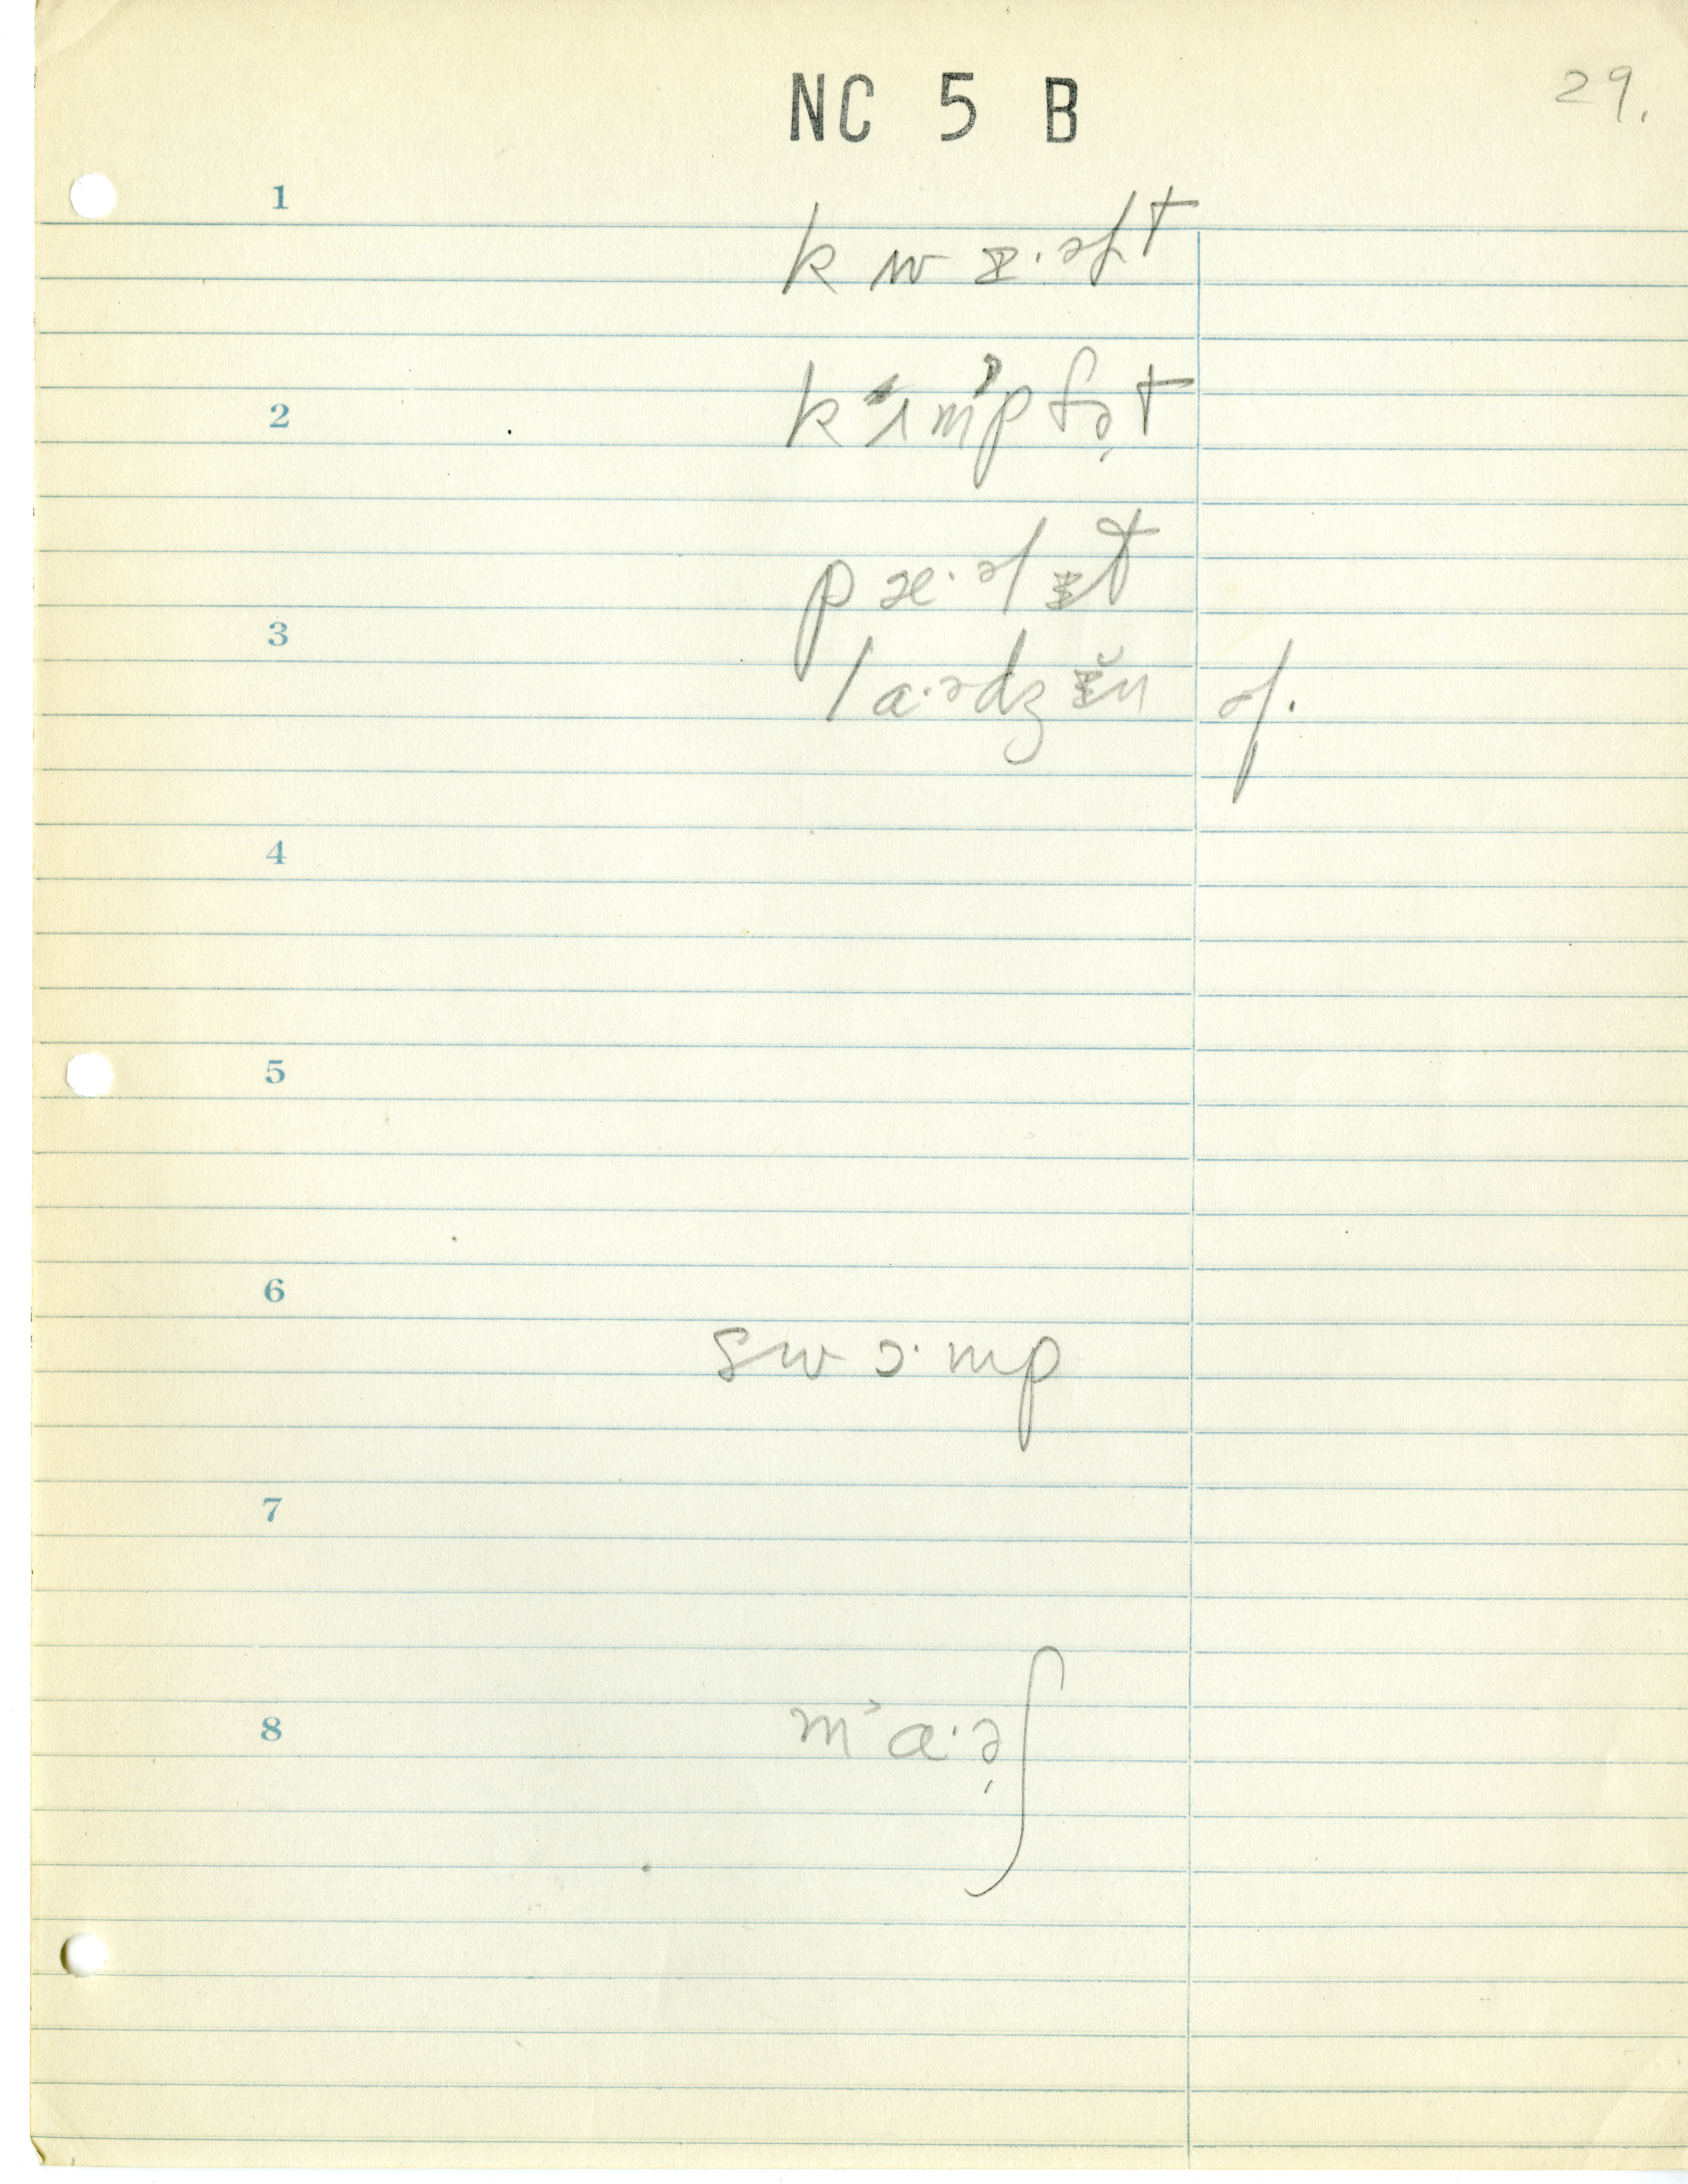 NC 5 B
29.
1
kwɪ·əɫt
2
kʌmpfə̦t
pæ·əlɪt
3
la·ədʒɪ̆n ɟ.
4
5
6
swɔ·mp
7
8
m˃a·ə̦ʃ